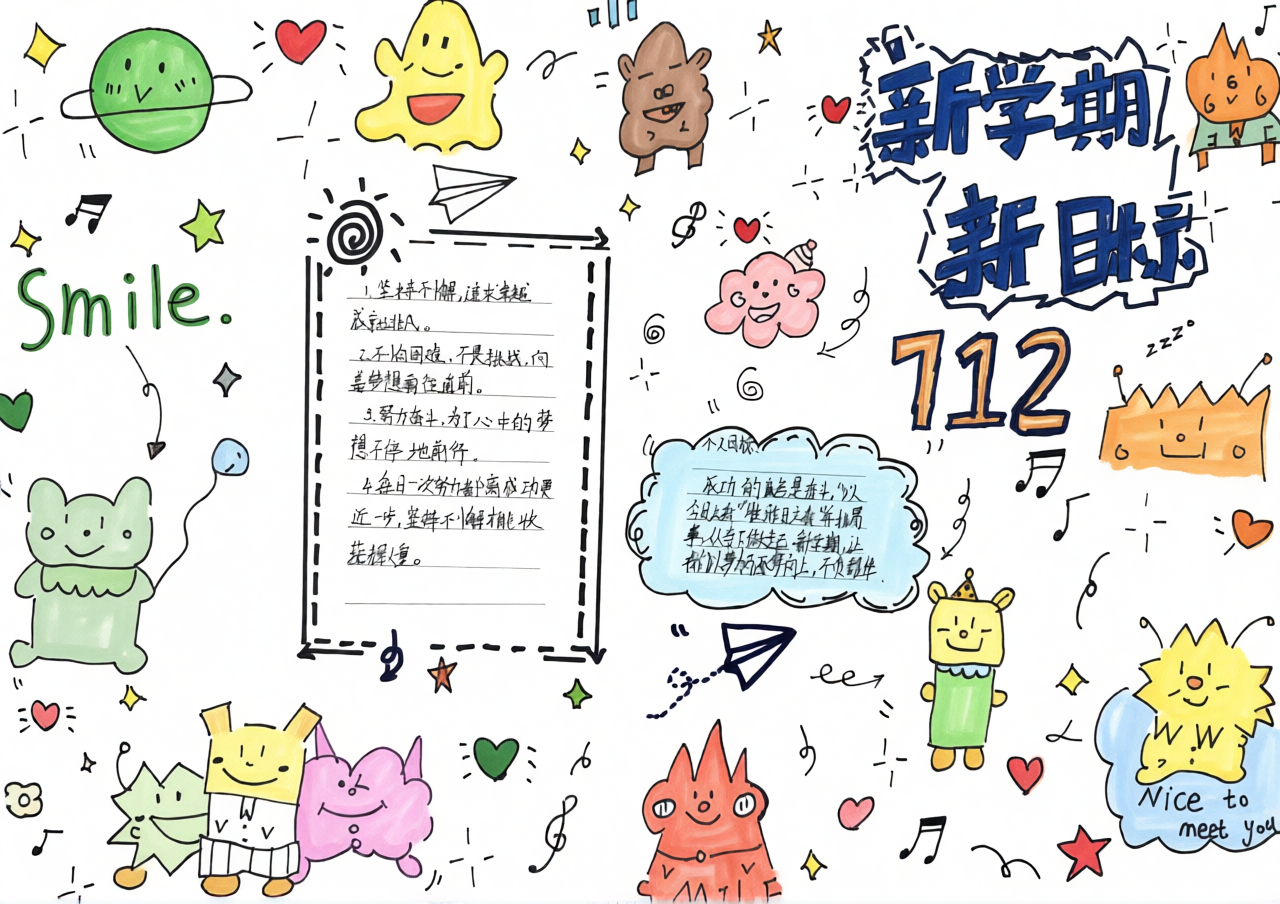 新学期
新目标
712
Smile.
zzz
1.坚持不懈,追求卓越
成就非凡。
2.不怕困难,不畏挑战,向
着梦想勇往直前。
3.努力奋斗,为了心中的梦
想不停地前行。
4.每日一次努力都离成功更
近一步,坚持不懈才能收
获辉煌。
个人目标
成功的 是奋斗,以
今日
新学期,让
向上,不负韶华
Nice to
meet you